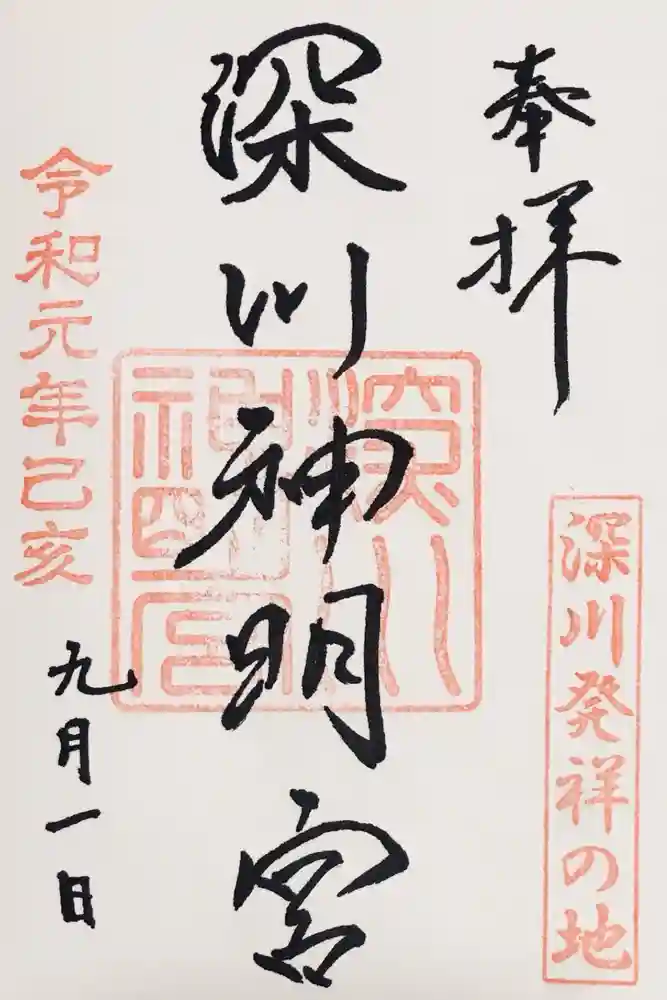 奉拝
深川発祥の地
深川神明宮
深川神明宮
令和元年己亥
九月一日